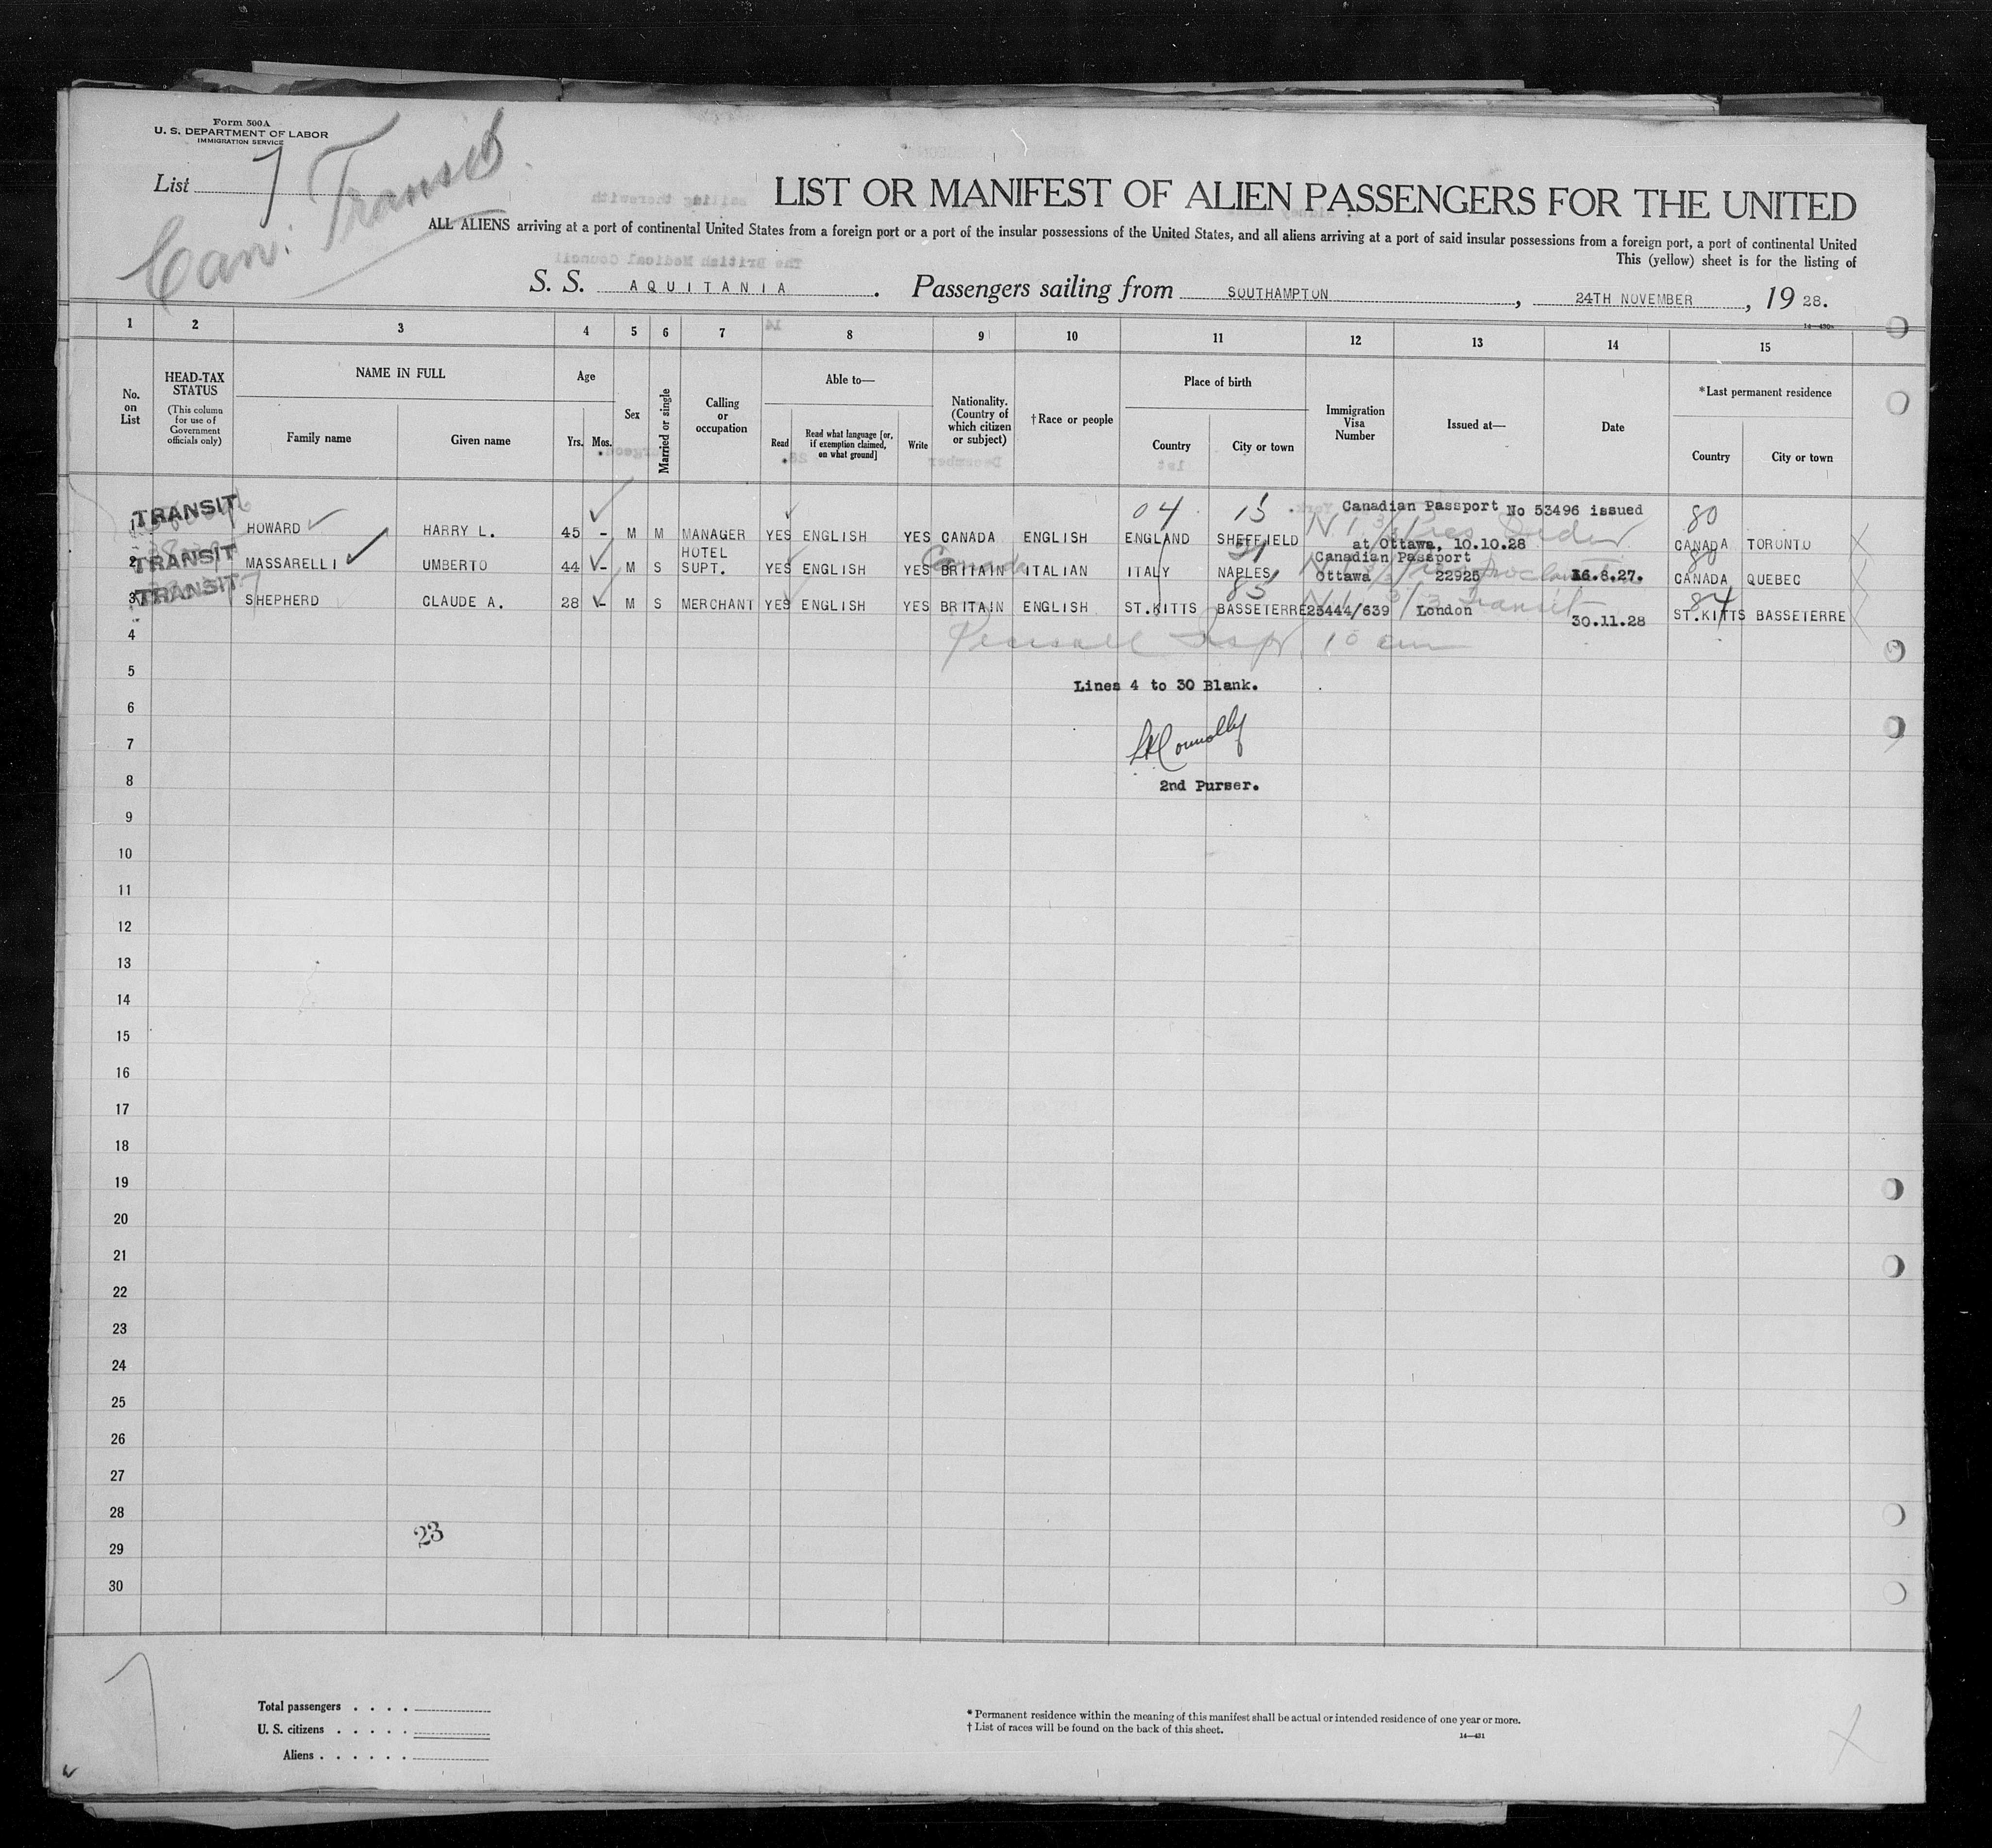 Form 500A
U. S. DEPARTMENT OF LABOR
IMMIGRATION SERVICE
List 7
Can. Transit
LIST OR MANIFEST OF ALIEN PASSENGERS FOR THE UNITED
ALL ALIENS arriving at a port of continental United States from a foreign port or a port of the insular possessions of the United States, and all aliens arriving at a port of said insular possessions from a foreign port, a port of continental United
This (yellow) sheet is for the listing of
S. S. AQUITANIA. Passengers sailing from SOUTHAMPTON, 24TH NOVEMBER, 19 28.
14—430a
1 2 3 4 5 6 7 8 9 10 11 12 13 14 15
No. on List
HEAD-TAX STATUS
(This column for use of Government officials only)
NAME IN FULL
Family name Given name
Age
Yrs. Mos.
Sex
Married or single
Calling or occupation
Able to—
Read
Read what language [or, if exemption claimed, on what ground]
Write
Nationality. (Country of which citizen or subject)
†Race or people
Place of birth
Country City or town
Immigration Visa Number
Issued at—
Date
*Last permanent residence
Country City or town
04 15 Canadian Passport No 53496 issued 80
1 TRANSIT HOWARD HARRY L. 45 - M M MANAGER YES ENGLISH YES CANADA ENGLISH ENGLAND SHEFFIELD at Ottawa, 10.10.28 CANADA TORONTO
Canada 21 Canadian Passport 80
2 TRANSIT MASSARELLI UMBERTO 44 - M S HOTEL SUPT. YES ENGLISH YES BRITAIN ITALIAN ITALY NAPLES Ottawa 22925 16.8.27. CANADA QUEBEC
85 Transit 84
3 TRANSIT SHEPHERD CLAUDE A. 28 - M S MERCHANT YES ENGLISH YES BRITAIN ENGLISH ST.KITTS BASSETERRE 23444/639 London 30.11.28 ST.KITTS BASSETERRE
4
5
Lines 4 to 30 Blank.
6
7
Connolly
8
2nd Purser.
9
10
11
12
13
14
15
16
17
18
19
20
21
22
23
24
25
26
27
28
23
29
30
Total passengers
U. S. citizens
Aliens
* Permanent residence within the meaning of this manifest shall be actual or intended residence of one year or more.
† List of races will be found on the back of this sheet.
14—431